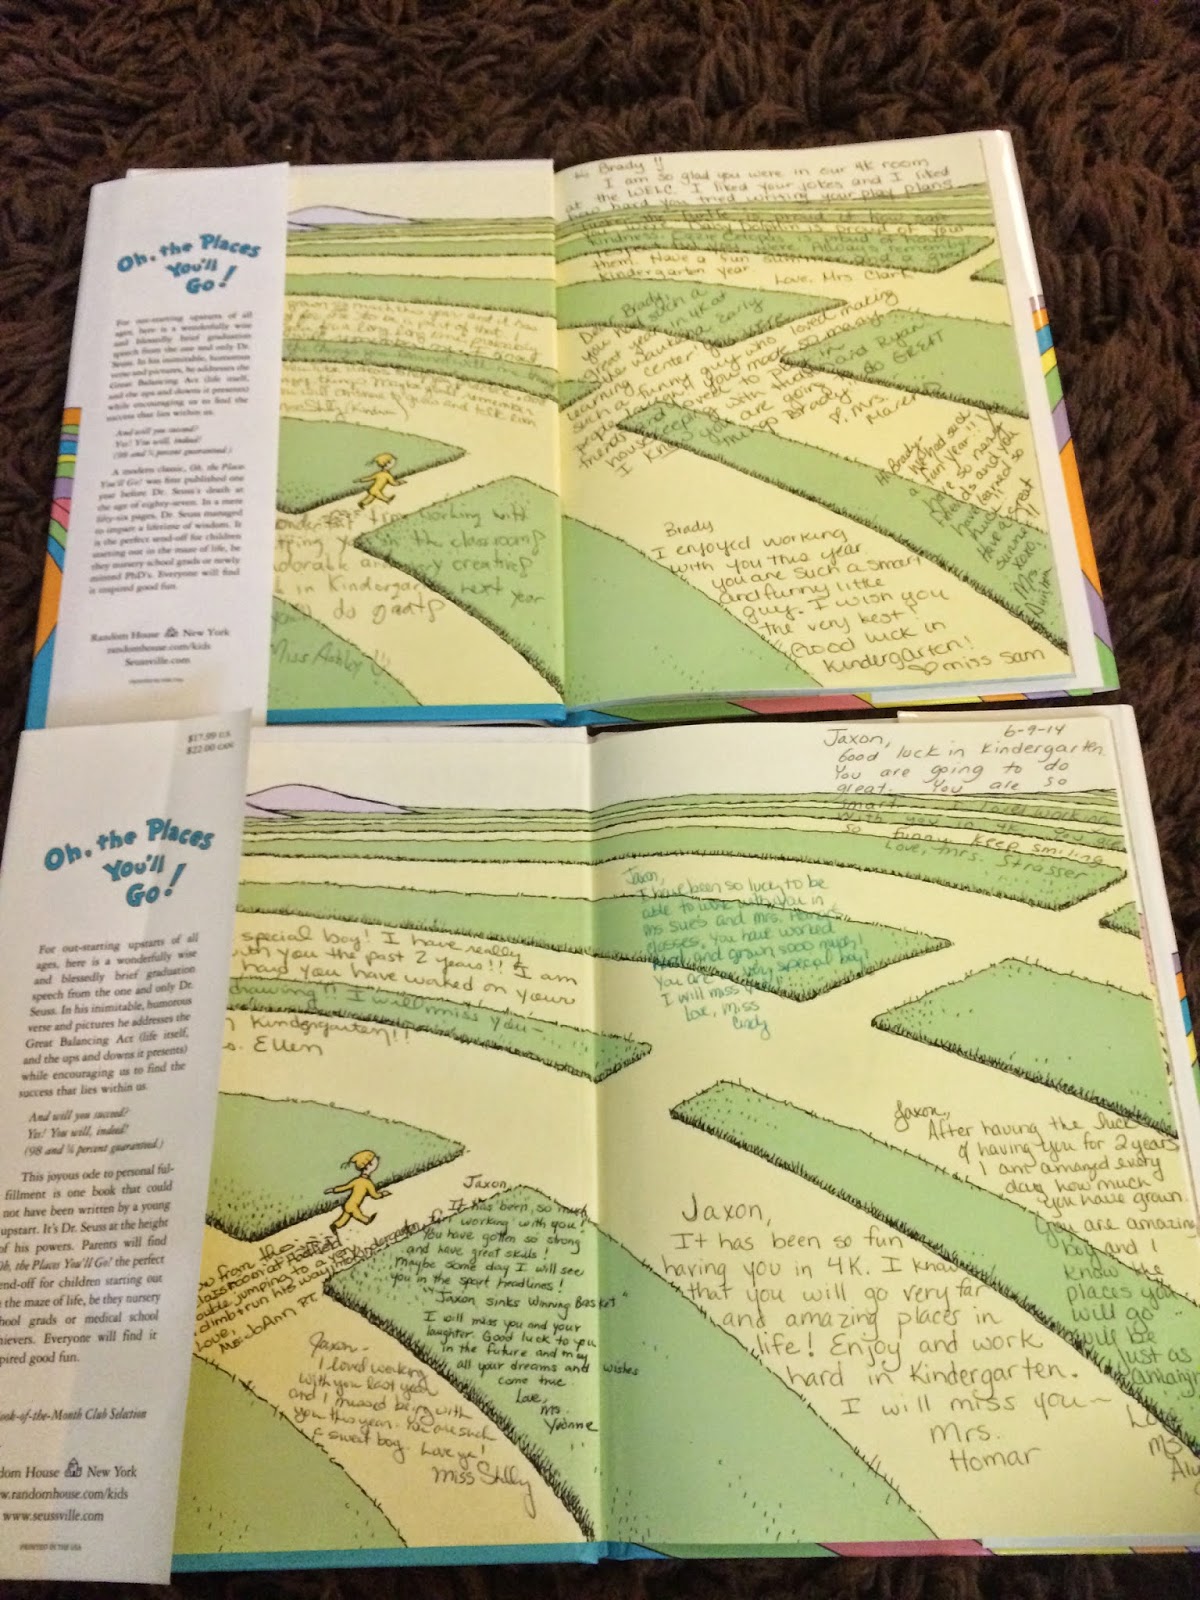 Oh, the Places
You'll
Go!
For out-starting upstarts of all
ages, here is a wonderfully wise
and blessedly brief graduation
speech from the one and only Dr.
Seuss. In his inimitable, humorous
verse and pictures he addresses the
Great Balancing Act (life itself,
and the ups and downs it presents)
while encouraging us to find the
success that lies within us.
And will you succeed?
Yes! You will, indeed!
(98 and ¾ percent guaranteed.)
A modern classic, Oh, the Places
You'll Go! was first published one
year before Dr. Seuss's death at
the age of eighty-seven. In a mere
fifty-six pages, Dr. Seuss managed
to impart a lifetime of wisdom. It
is the perfect send-off for children
starting out in the maze of life, be
they nursery school grads or newly
minted PhD's. Everyone will find
it inspired good fun.
Random House New York
randomhouse.com/kids
Seussville.com
PRINTED IN THE USA
grown so much this year and it has
working with
the classroom
adorable and very creative
in Kindergarten next year
do great
Miss Ashley
Brady!!
I am so glad you were in our 4K room
at the WELC. I liked your jokes and I liked
how hard you tried writing your play plans
is proud of
kindness
is proud of how
them. Have a fun summer and a great
kindergarten year.
Love, Mrs. Clark
Dear Brady,
you had such a
great year in 4K at
the Early
learning center you were
such a funny guy who loved making
people laugh and you made so many
friends
housekeeping with and Ryan
I know you are going to do GREAT
things Brady
Mrs.
Hi Brady-
We had such
a fun year!!
have so many
friends and you
have learned so
much
Have a great
summer!!
XOXO!
Mrs.
Brady
I enjoyed working
with you this year
you are such a smart
and funny little
guy. I wish you
the very best
Good luck in
Kindergarten!
miss Sam
$17.99 US
$22.00 CAN
Oh, the Places
You'll
Go!
For out-starting upstarts of all
ages, here is a wonderfully wise
and blessedly brief graduation
speech from the one and only Dr.
Seuss. In his inimitable, humorous
verse and pictures he addresses the
Great Balancing Act (life itself,
and the ups and downs it presents)
while encouraging us to find the
success that lies within us.
And will you succeed?
Yes! You will, indeed!
(98 and ¾ percent guaranteed.)
This joyous ode to personal ful-
fillment is one book that could
not have been written by a young
upstart. It's Dr. Seuss at the height
of his powers. Parents will find
Oh, the Places You'll Go! the perfect
end-off for children starting out
the maze of life, be they nursery
hool grads or medical school
hievers. Everyone will find it
pired good fun.
ook-of-the-Month Club Selection
dom House New York
w.randomhouse.com/kids
www.seussville.com
PRINTED IN THE USA
special boy! I have really
with you the past 2 years!! I am
hard you have worked on your
drawing!! I will miss you-
Kindergarten!!
Ellen
from
classroom at
jumping to a
climb & run his way into Kindergarten
Love,
Ms. JoAnn P.T.
Jaxon,
It has been so much
fun working with you!
You have gotten so strong
and have great skills!
maybe some day I will see
you in the sport headlines!
"Jaxon sinks winning Basket"
I will miss you and your
laughter. Good luck to you
in the future and may
all your dreams and wishes
come true
Love,
Ms.
Yvonne
Jaxon-
I loved working
with you last year
and I missed being with
you this year. You are such
a sweet boy. Love ya!
Miss Shelly
6-9-14
Jaxon,
Good luck in Kindergarten.
You are going to do
great. You are so
smart. I loved working
with you in 4K. You are
so funny keep smiling
Love, Mrs. Strasser
Jaxon,
I have been so lucky to be
able to work with you in
Ms Sue's and Mrs. Homar's
classes. You have worked
hard and grown sooo much!
You are a very special boy!
I will miss you!
Love, Miss
Cindy
Jaxon,
After having the luck
of having you for 2 years
I am amazed every
day how much
you have grown.
You are amazing
boy and I
know the
places you
will go
will be
just as
amazing
Love
Ms
Jaxon,
It has been so fun
having you in 4K. I know
that you will go very far
and amazing places in
life! Enjoy and work
hard in Kindergarten.
I will miss you~
Mrs.
Homar